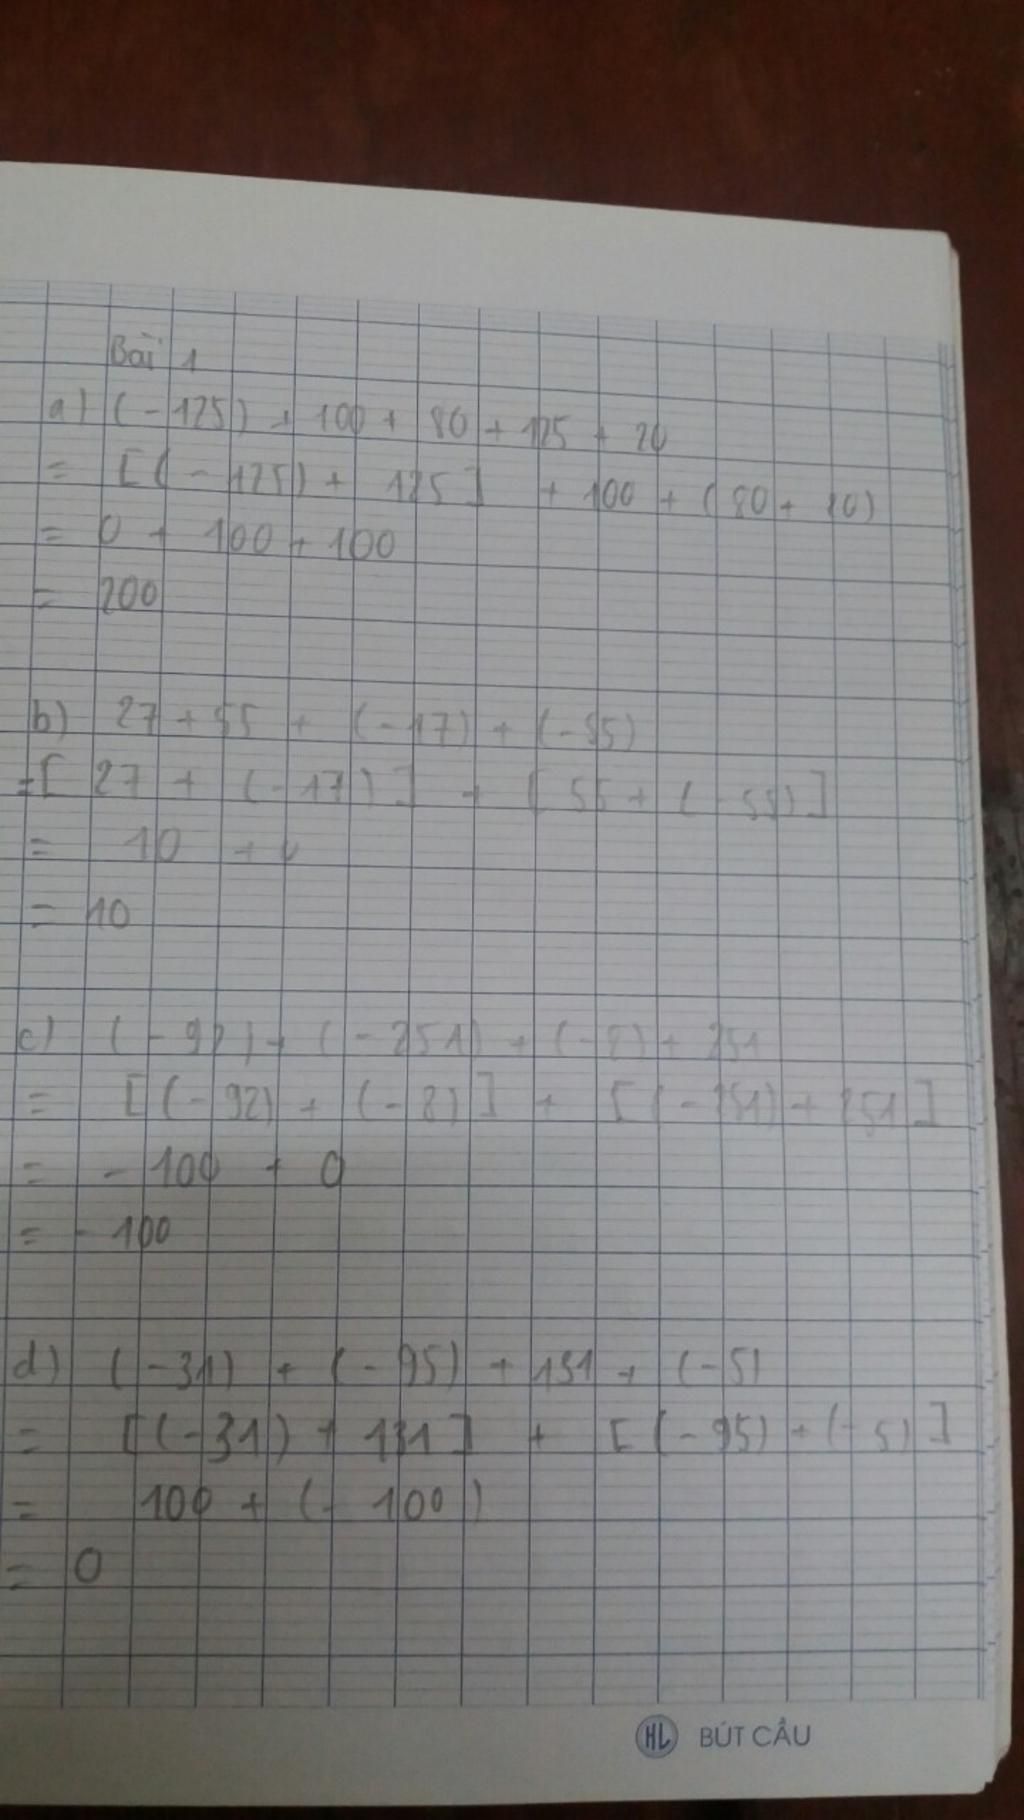 Bài 1
a) (-125) + 100 + 80 + 125 + 20
= [(-125) + 125] + 100 + (80 + 20)
= 0 + 100 + 100
= 200
b) 27 + 55 + (-17) + (-55)
= [27 + (-17)] + [55 + (-55)]
= 10 + 0
= 10
c) (-92) + (-251) + (-8) + 251
= [(-92) + (-8)] + [(-251) + 251]
= -100 + 0
= -100
d) (-31) + (-95) + 131 + (-5)
= [(-31) + 131] + [(-95) + (-5)]
= 100 + (-100)
= 0
HL BÚT CẦU